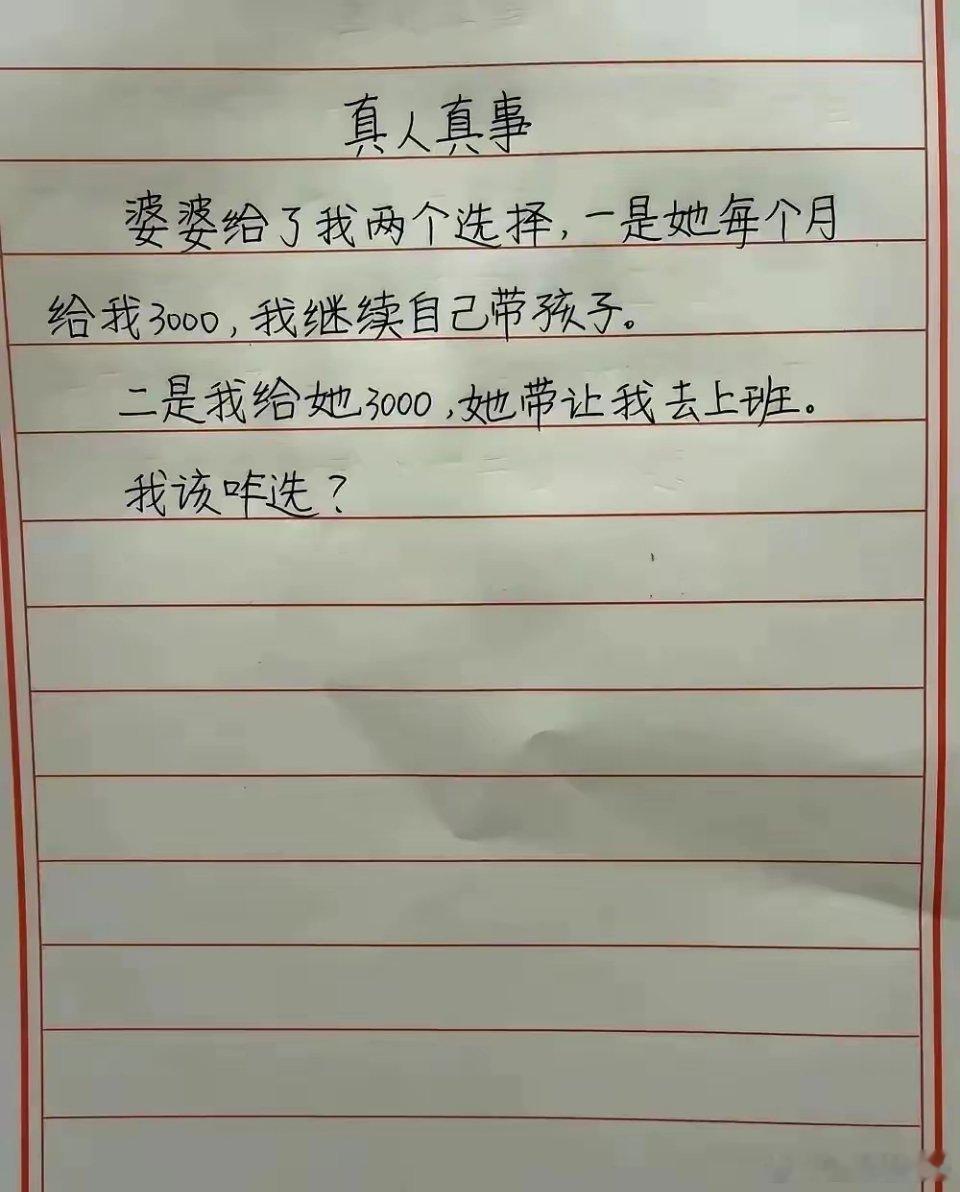 真人真事
婆婆给了我两个选择,一是她每个月
给我3000,我继续自己带孩子。
二是我给她3000,她带让我去上班。
我该咋选?